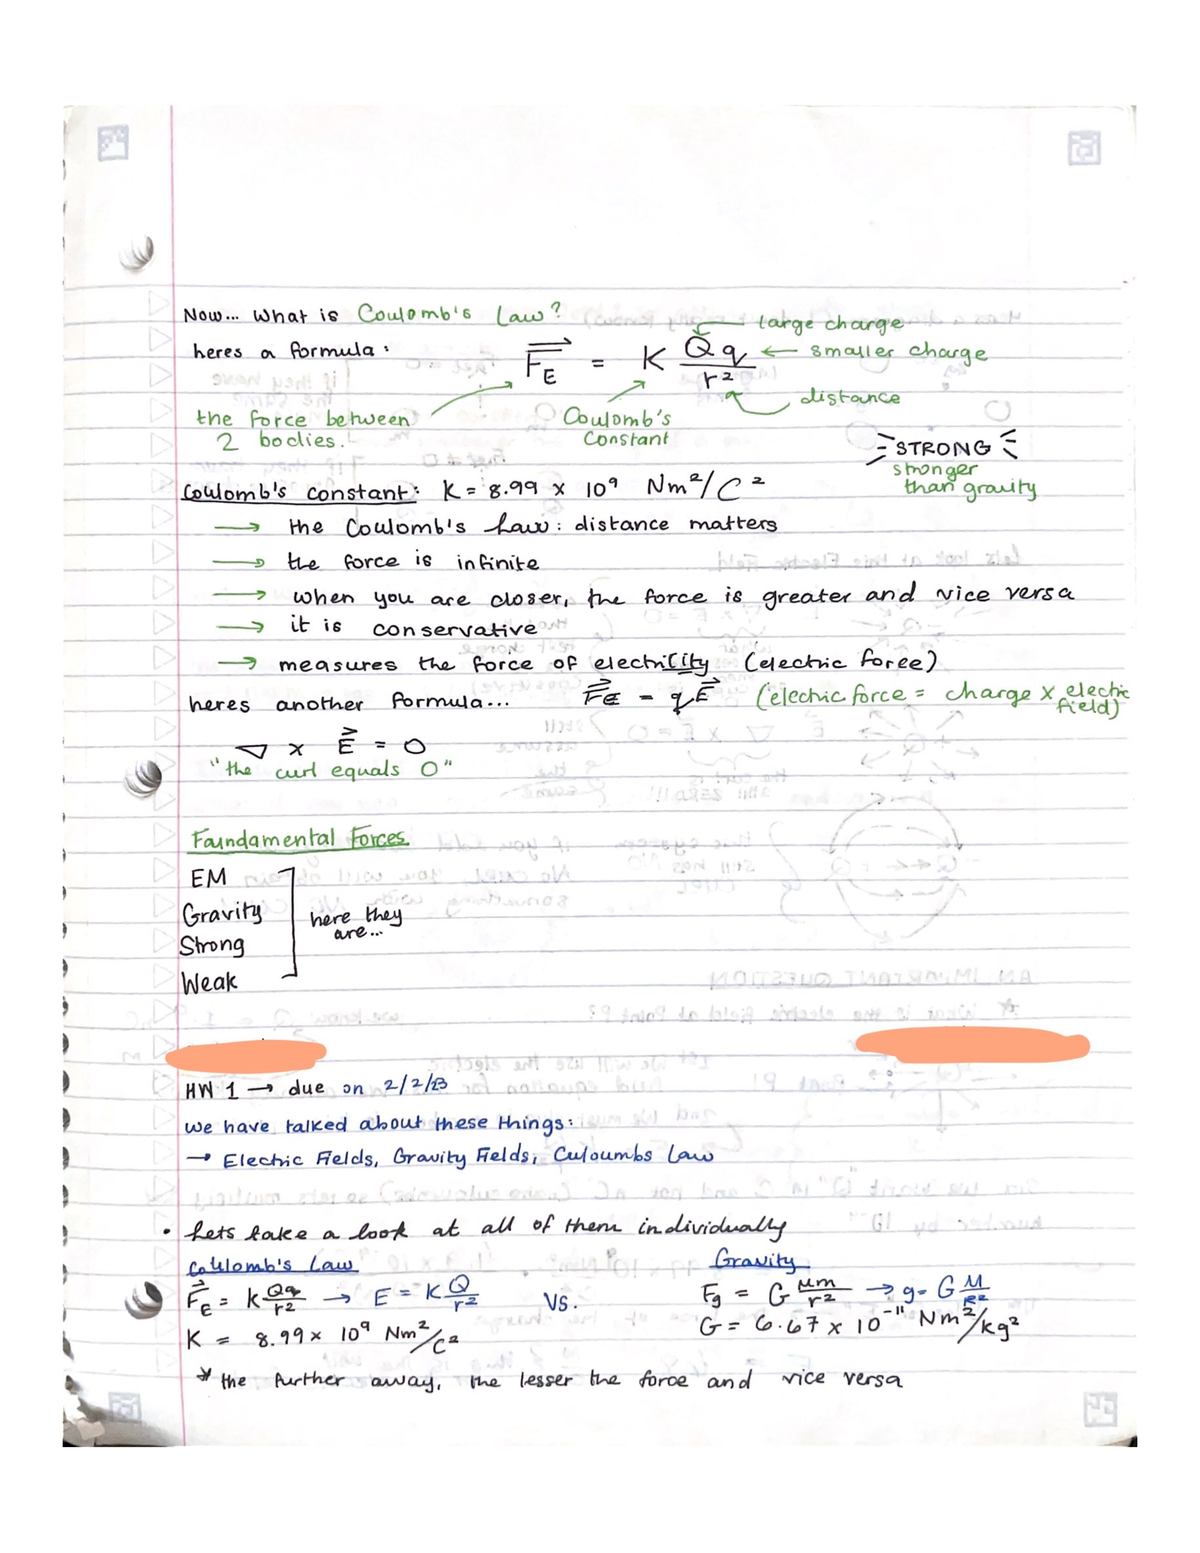 Now... what is Coulomb's Law?
large charge
heres a formula:
F⃗E = K Qq / r²
smaller charge
distance
the force between
2 bodies.
Coulomb's
Constant
STRONG
stronger
than gravity
Coulomb's constant: K = 8.99 x 10⁹ Nm²/C²
→ the Coulomb's Law: distance matters
→ the force is infinite
→ when you are closer, the force is greater and vice versa
→ it is conservative
→ measures the force of electricity (electric force)
heres another formula... F⃗E = qE⃗ (electric force = charge x electric
field)
▽ x E⃗ = 0
"the curl equals 0"
Faundamental Forces
EM
Gravity
Strong
Weak
here they
are...
HW 1 → due on 2/2/23
we have talked about these things:
→ Electric Fields, Gravity Fields, Culoumbs Law
• Lets take a look at all of them individually
Coulomb's Law
F⃗E = K Qq/r² → E = K Q/r²
K = 8.99 x 10⁹ Nm²/C²
Vs.
Gravity
Fg = G Mm/r² → g = G M/R²
G = 6.67 x 10⁻¹¹ Nm²/kg²
* the further away, the lesser the force and vice versa